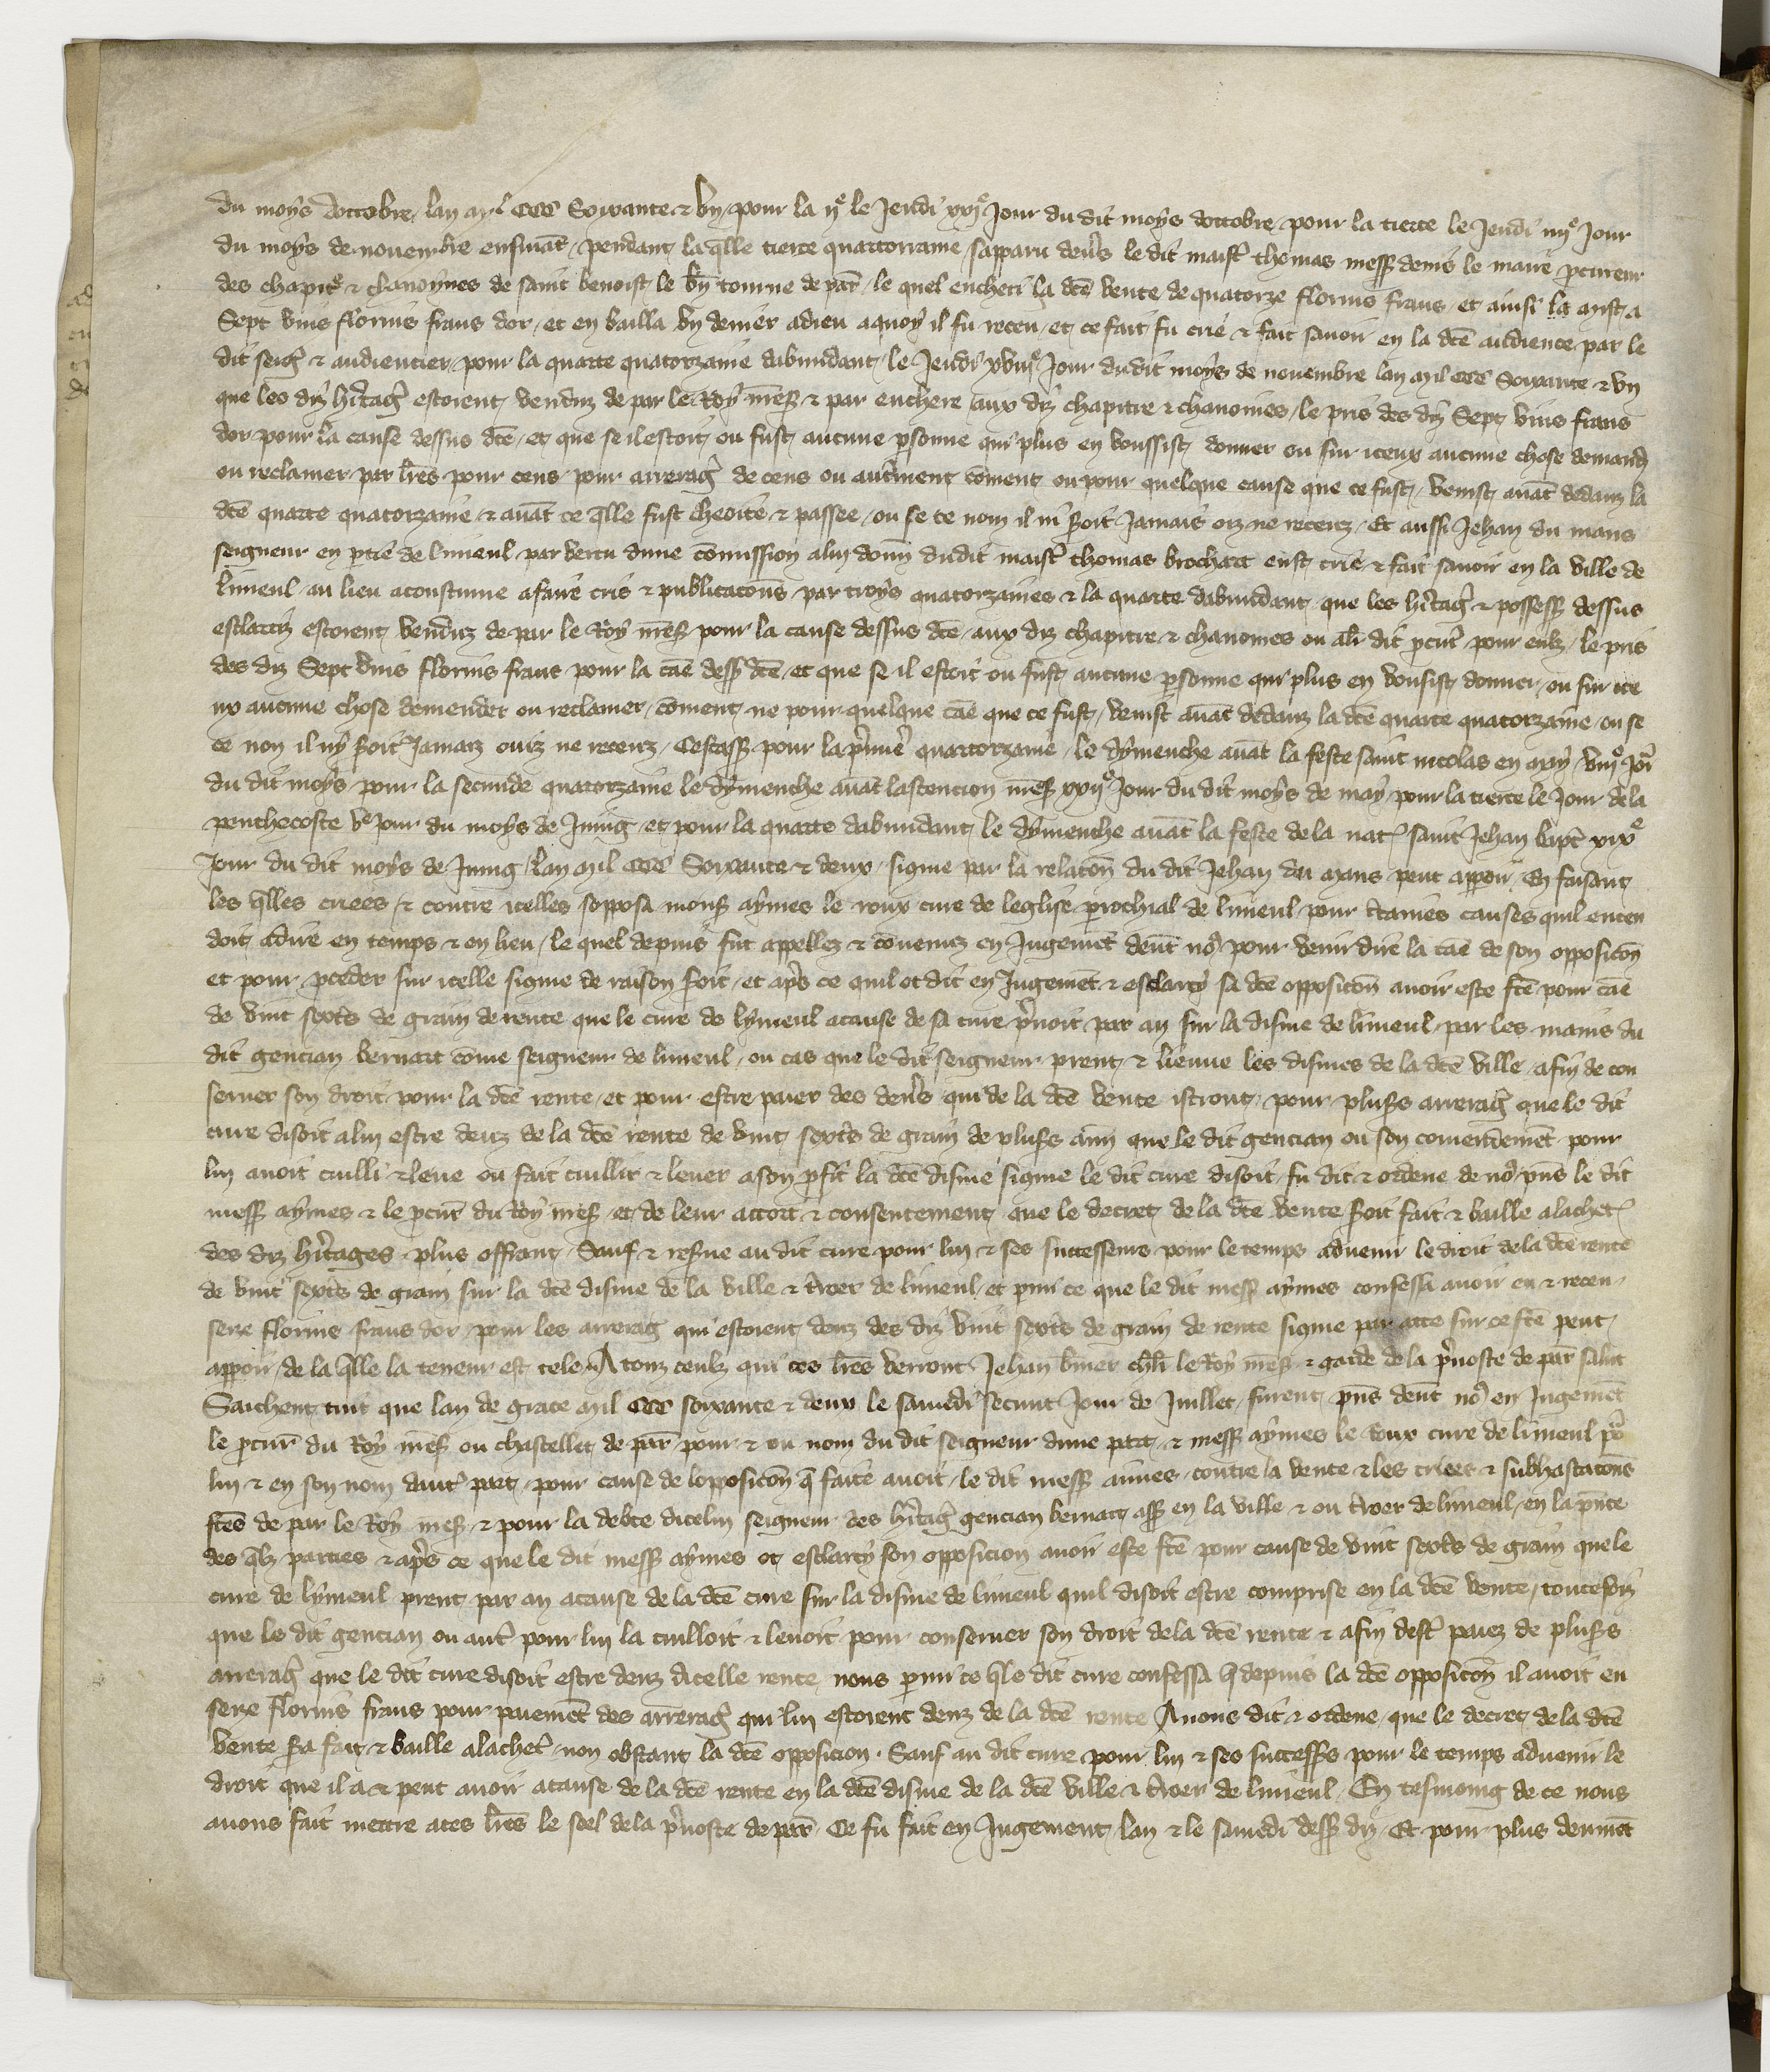 du moys doctobre lan mil CCC Soixante & un pour la ije le Jeudi xxje Jour du dit moys doctobre pour la tierce le Jeudi iiije Jour
du moys de novembre ensuiāt pendant la qlle tierce quattorzaine sapparu devs le dit maistr thomas mess denis le maire pcureur
des chapitre & chanoynes de saint benoist le bn tourne de par le quel encheri la dce vente de quatorze florins frans et ainsi la mist a
Sept vins florins frans dor et en bailla un denier adieu aquoy il fu receu et ce fait fu crie & fait savoir en la dce audience par le
dit serg & audiencier pour la quarte quatorzaine dabundant le Jeudi xviije Jour dudit moys de novembre lan mil CCC Soixante & un
que les diz hitag estoient venduz de par le Roy mess & par enchere aux diz chapitre & chanoines le pris des diz Sept vins frans
dor pour la cause dessus dce et que se il estoit ou fust aucune psonne qui plus en voussist donner ou sur iceux aucune chose demand
ou reclamer par lres pour cens pour arrerag de cens ou autrement coment ou pour quelque cause que ce fust venist avāt dedanz la
dce quarte quatorzaine & avāt ce qlle fust cheoite & passee ou se ce nom il ni seroit Jamais oiz ne receuz Et aussi Jehan du mans
seigneur en ptie de limeul par vertu dune comission a lui donn dudit maistr thomas brochart eust crie & fait savoir en la ville de
limeul au lieu acoustume afaire cris & publicacons par troys quatorzaines & la quarte dabundant que les hitag & possess dessus
esclarciz estoient venduz de par le Roy mess pour la cause dessus dce aux diz chapitre & chanoines ou au dit pcur pour eulz le pris
des diz Sept vins florins frans pour la cāe dess dce et que se il estoit ou fust aucune psonne qui plus en vousist donner ou sur ice
ux aucune chose demender ou reclamer coment ne pour quelque cāe que ce fust venist avāt dedanz la dce quarte quatorzaine ou se
ce non il ny seroit Jamaiz ouiz ne receuz Cestass pour la pmiere quattorzaine le dymenche avāt la feste saint nicolas en may viije Jor
du dit moys pour la secunde quatorzaine le dymenche avāt lascencion mess xxije Jour du dit moys de may pour la tierce le Jour dela
penthecoste ve Jour du moys de Juing et pour la quarte dabundant le dymenche avāt la feste de la nat saint Jehan bapt xixe
Jour du dit moys de Juing lan mil CCC Soixante & deux sigme par la relacon du dit Jehan du mans peut apparoir En faisant
les qlles criees & contre icelles sopposa mons aymes le roux cure de leglise prochial de limeul pour ctaines causes quil enten
doit adire en temps & en lieu le quel depuis fut appellez & convenuz en Jugemēt devāt no pour venir dire la cāe de son opposicon
et pour pceder sur icelle sigme de raison seroit et aps ce quil ot dit en Jugemēt & esclarcy sa dce opposicon avoir este fce pour cāe
de vint sexts de grain de rente que le cure de lymeul acause de sa cure pnoit par an sur la disme de limeul par les mains du
dit gencian bernart come seigneur de limeul ou cas que le dit seigneur prent & lieuve les dismes de la dce ville afin de con
server son droit pour la dce rente et pour estre paier des devs qui de la dce vente istront pour pluss arrerag que le dit
cure disoit a lui estre deuz de la dce rente de vint sexts de grain de pluss ann que le dit gencian ou son comendemēt pour
lui avoit cuilli & leve ou fait cuillir & lever a son pfit la dce disme sigme le dit cure disoit fu dit & ordene de no pns le dit
mess aymes & le pcur du Roy mess et de leur accort & consentement que le decret de la dce vente seroit fait & baille alachet
des diz hitages plus offrant Sauf & resve au dit cure pour lui & ses successeurs pour le temps advenir le droit dela dce rente
de vint sexts de grain sur la dce disme de la ville & troer de limeul et pmi ce que le dit mess aymes confessa avoir eu & receu
seze florins frans dor pour les arrerag qui estoient deuz des diz vint sexts de grain de rente sigme par acte sur ce fce peut
apparoir de la qlle la teneur est tele A touz ceulz qui ces lres verront Jehan bnier chlr le Roy mess & garde de la pvoste de par salut
Saichent tuit que lan de grace mil CCC soixante & deux le samedi secunt Jour de Juillet furent pns devt no en Jugemēt
le pcur du Roy mess ou chastellet de par pour & ou nom du dit seigneur dune part & mess aymes le Roux cure de limeul po
lui & en son nom dautr part pour cause de lopposicon q faite avoit le dit mess aimes contre la vente & les criees & subhastacons
fces de par le Roy mess & pour la debte dicelui seigneur des hitag gencian bernart ass en la ville & ou troer de limeul en la pnce
des qlz parties & aps ce que le dit mess aymes ot esclarcy son opposicion avoir este fce pour cause de vint sexts de grain que le
cure de lymeul prent par an acause de la dce cure sur la disme de limeul quil disoit estre comprise en la dce vente toutefoiz
que le dit gencian ou autr pour lui la cuilloit & levoit pour conserver son droit dela dce rente & afin destr paiez de pluss
arrerag que le dit cure disoit estre deuz dicelle rente nous pmi ce q le dit cure confessa q depuis la dce opposicon il avoit eu
seze florins frans pour paiemēt des arrerag qui lui estoient deuz de la dce rente Avons dit & ordene que le decret de la dce
vente sera fait & baille alachetr non obstant la dce opposicion Sauf au dit cure pour lui & ses successs pour le temps advenir le
droit que il a & peut avoir acause de la dce rente en la dce disme de la dce ville & troer de limeul En tesmoing de ce nous
avons fait mettre aces lres le seel dela pvoste de par Ce fu fait en Jugement lan & le samedi dess diz Et pour plus deuemēt